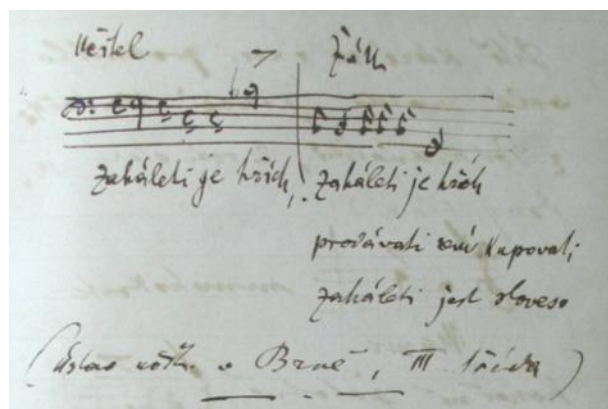 Učitel Žák
Zaháleti je hřích, Zaháleti je hřích
prodávati není kupovati;
zaháleti jest sloveso
(Ústav v Brně, III. třída)